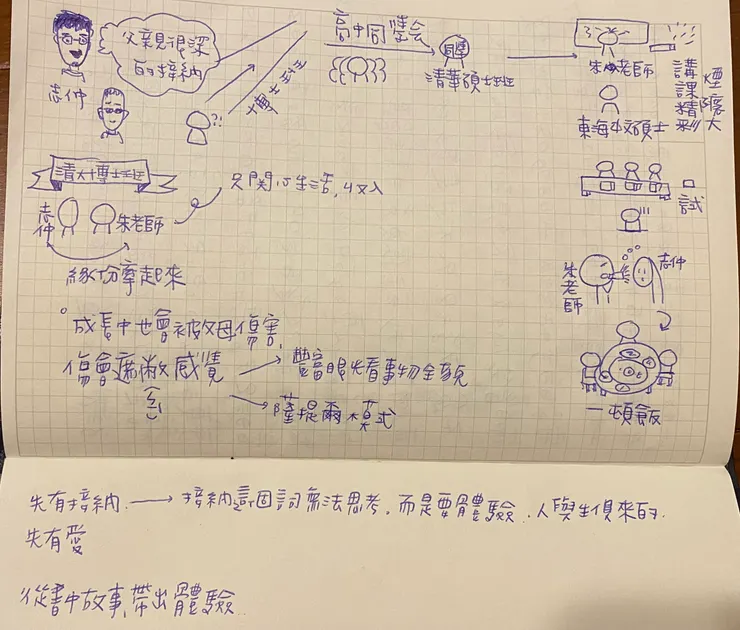 父親很深
的接納
志仲
?!
博士班
高中同學会
同學
清華碩士班
朱老師
講課精彩
煙癮大
東海中文碩士
口試
清大博士班
志仲
朱老師
只關心生活,收入
緣份牽起來
朱老師
志仲
一頓飯
成長中也會被父母傷害,
傷會遮蔽感覺
豐富眼光看事物全貌
薩提爾模式
先有接納
接納這個詞無法思考,而是要體驗.人與生俱來的.
先有愛
從書中故事,帶出體驗